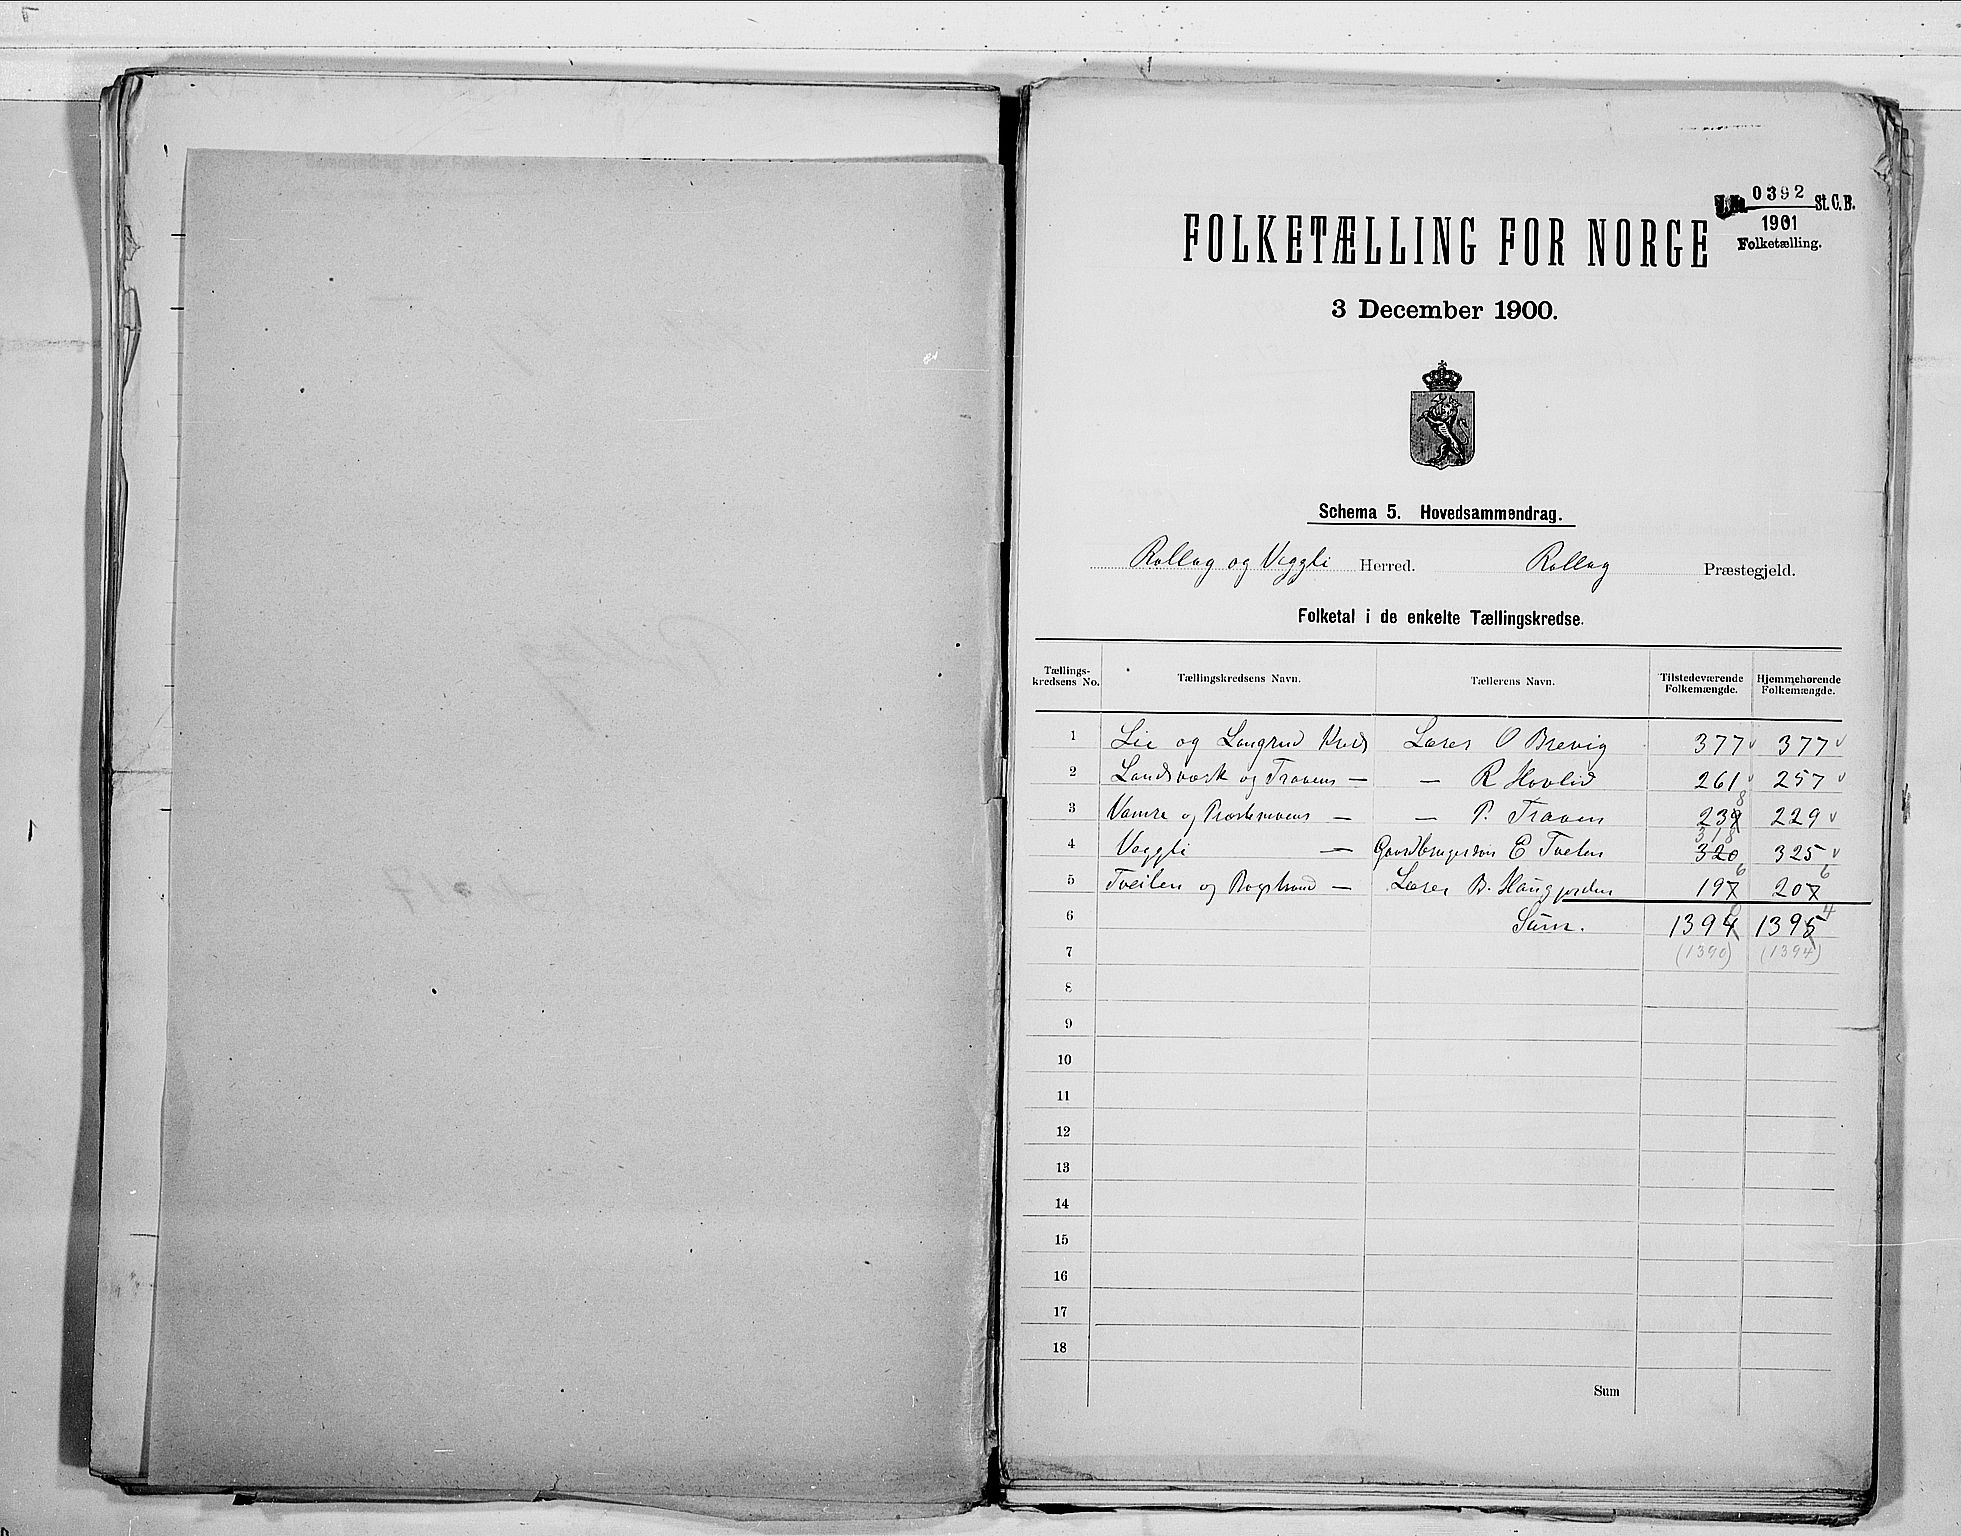 0392
St. C. B.
1901
Folketælling.
FOLKETÆLLING FOR NORGE
3 December 1900.
Schema 5. Hovedsammendrag.
Rollag og Veggli Herred. Rollag Præstegjeld.
Folketal i de enkelte Tællingskredse.
Tællings-kredsens No. Tællingskredsens Navn. Tællerens Navn. Tilstedeværende Folkemængde. Hjemmehørende Folkemængde.
1 Lie og Langrud Kreds Lærer O Brevig 377 377
2 og Traaens — — R Hovlid 261 257
8
3 Vamre og — — P. Traaen 239 229
318
4 Veggli — Gaardbruger E Tveten 320 325
6 6
5 Tveiten og — Lærer B. Haugjorden 197 207
0 4
6 Sum. 1394 1395
7 (1390) (1394)
8
9
10
11
12
13
14
15
16
17
18
Sum